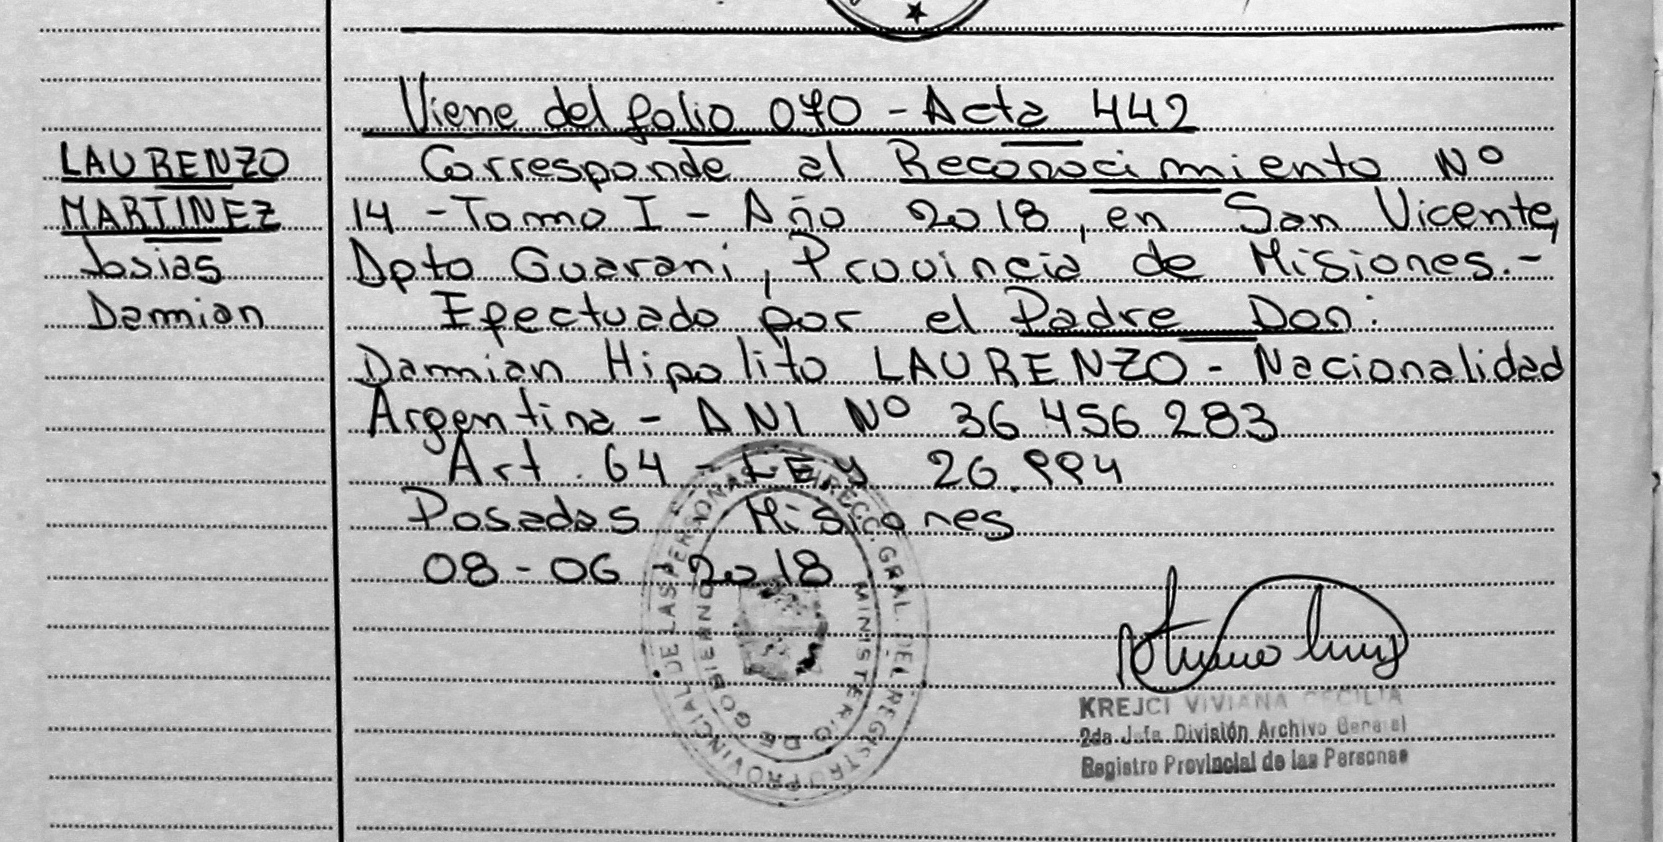 Viene del folio 070 - Acta 442
LAURENZO
MARTINEZ
Josias
Damian
Corresponde al Reconocimiento Nº
14 - Tomo I - Año 2018, en San Vicente,
Dpto Guarani, Provincia de Misiones.-
Efectuado por el Padre Don:
Damian Hipolito LAURENZO - Nacionalidad
Argentina - DNI Nº 36 456 283
Art. 64 - LEY 26.994
Posadas Misiones
08-06-2018
DIRECC. GRAL. DEL REGISTRO PROVINCIAL DE LAS PERSONAS
MINISTERIO DE GOBIERNO
KREJCI VIVIANA CECILIA
2da Jefa División Archivo General
Registro Provincial de las Personas